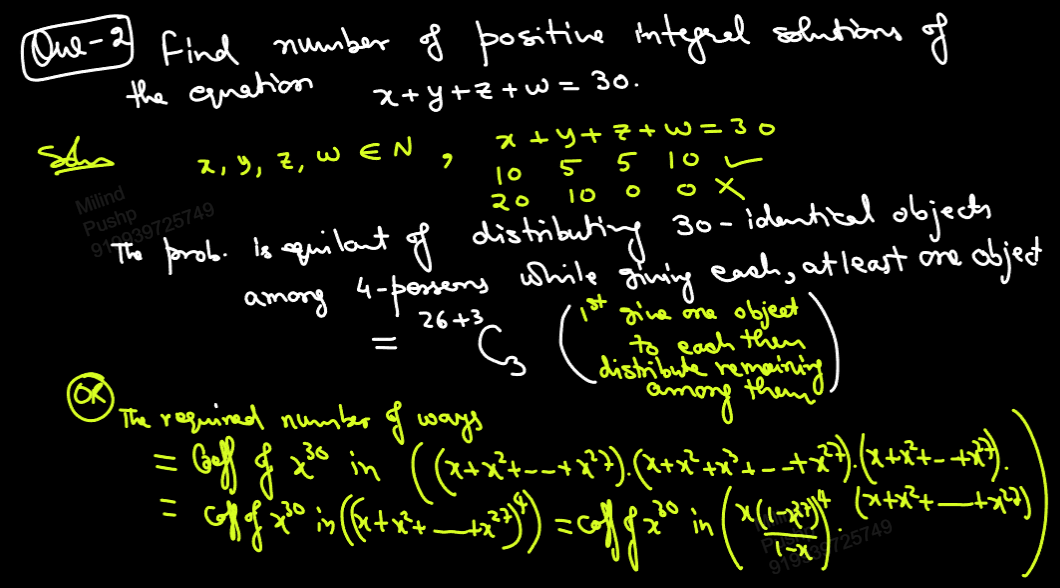 Que-2 Find number of positive integral solutions of
the equation x+y+z+w = 30.
Soln x, y, z, w ∈ N , x + y + z + w = 30
10 5 5 10 ✓
20 10 0 0 ✗
Milind
Pushp
919939725749
The prob. is equilant of distributing 30-identical objects
among 4-persons while giving each, at least one object
= ²⁶⁺³C₃ (1st give one object
to each then
distribute remaining
among them)
OR The required number of ways
= Coeff of x³⁰ in ((x+x²+---+x²⁷).(x+x²+x³+--+x²⁷).(x+x²+--+x²⁷).
(x+x²+---+x²⁷))
= Coff of x³⁰ in ((x+x²+---+x²⁷)⁴) = coff of x³⁰ in (x(1-x²⁷)/(1-x))⁴
919939725749